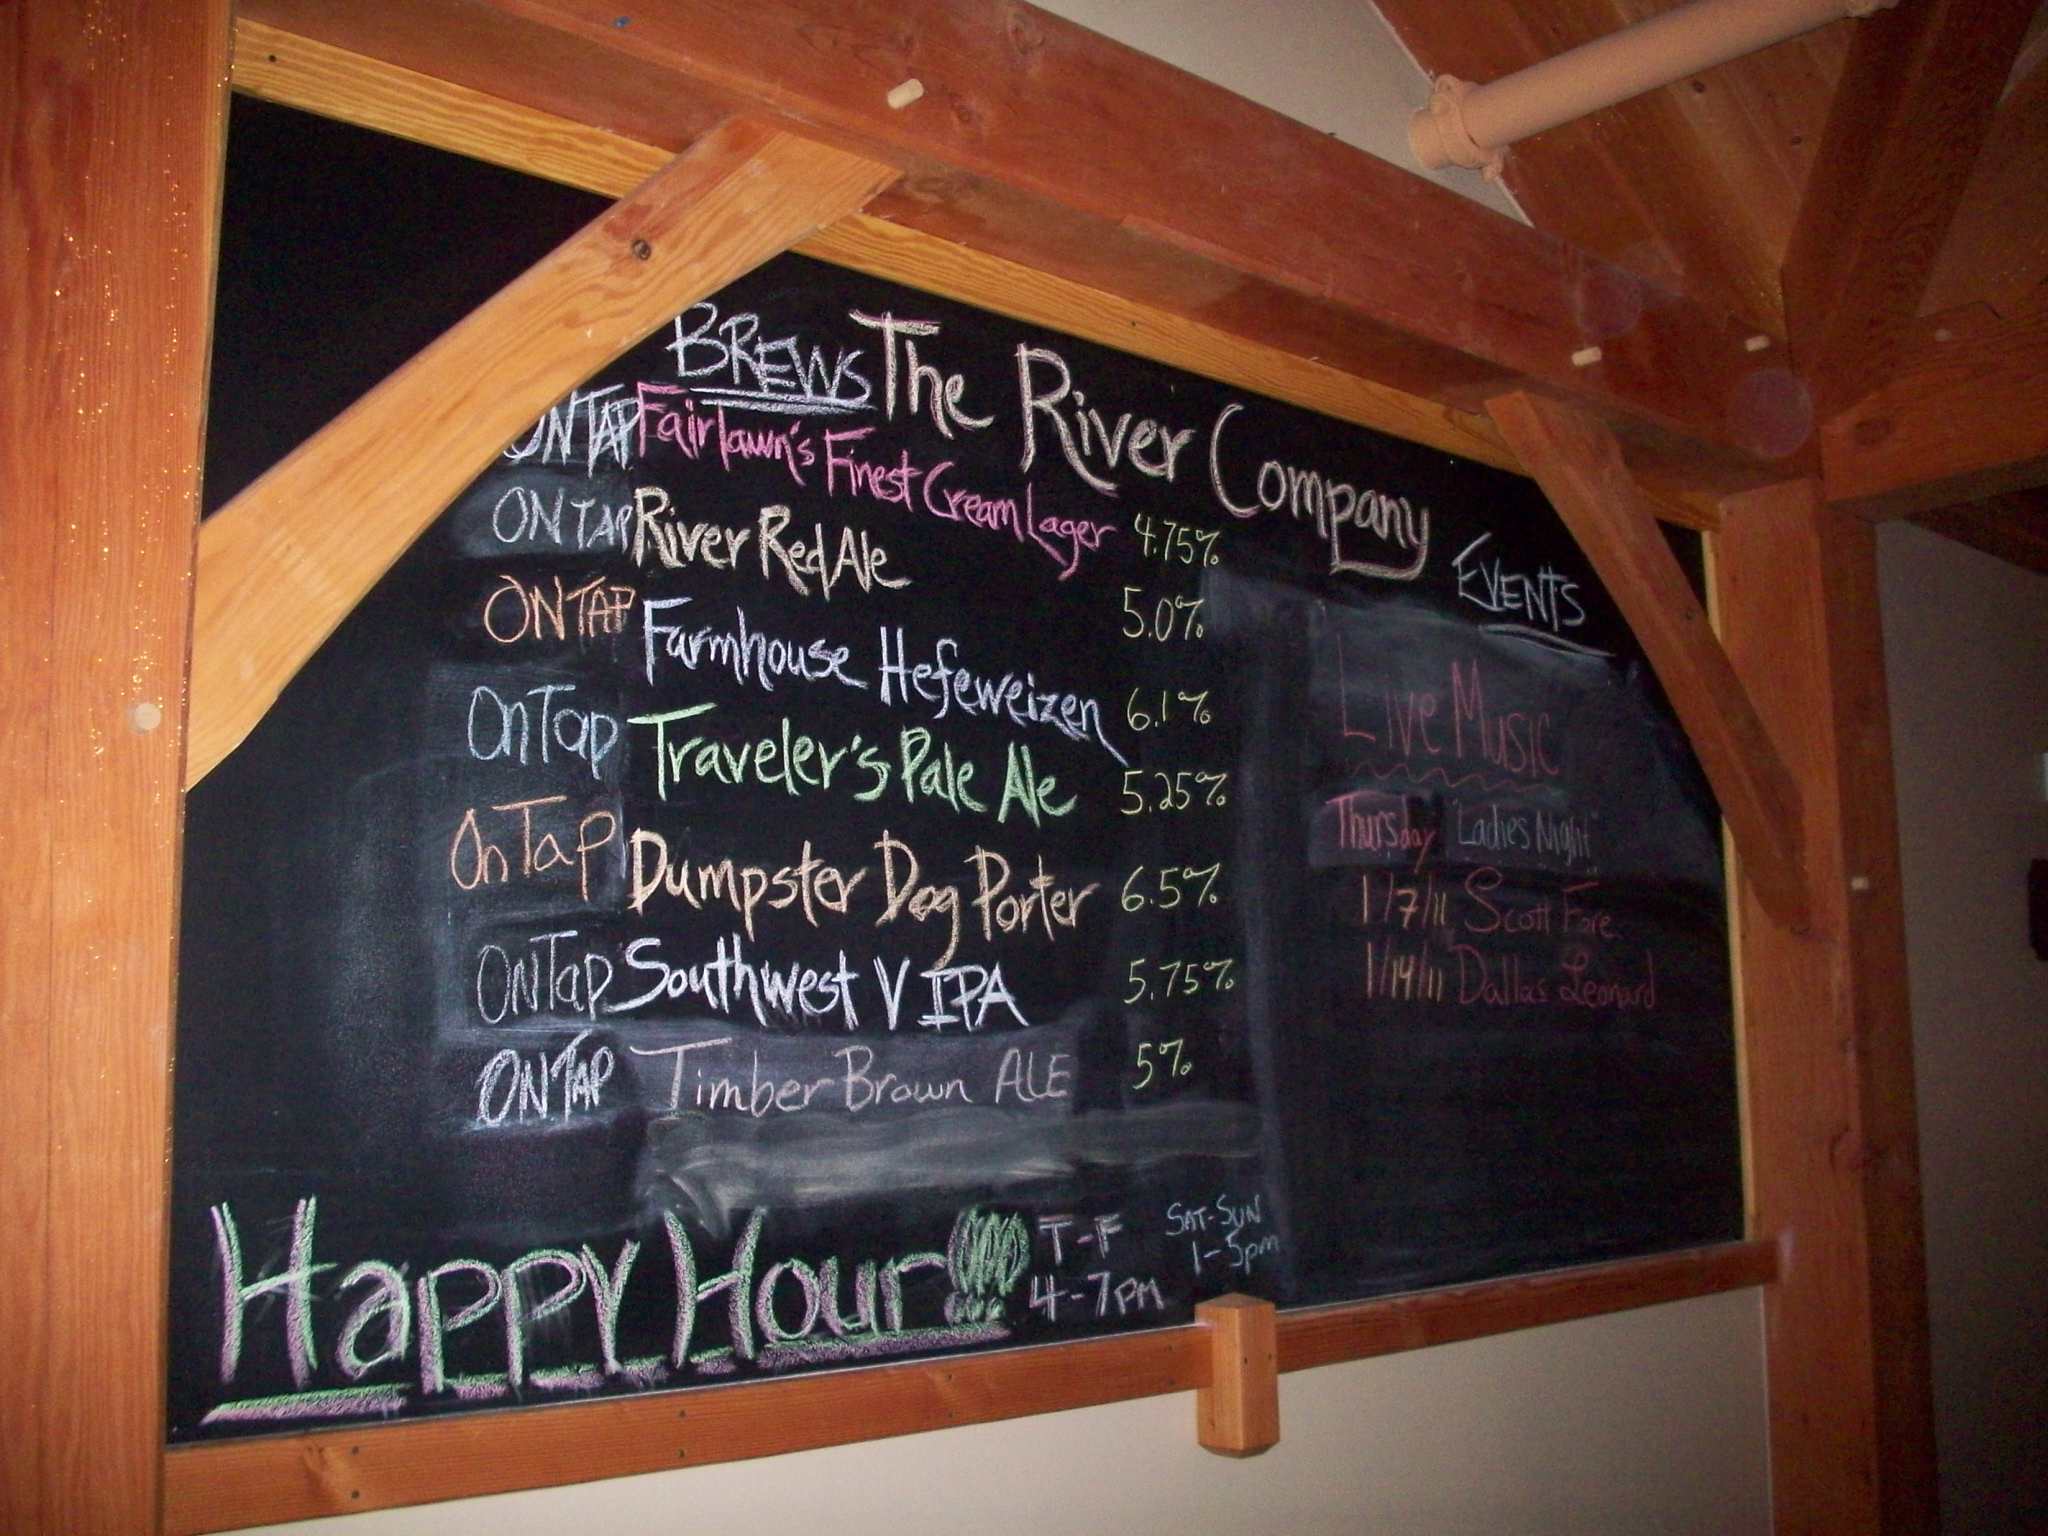 BREWS The River Company
ON TAP Fairlawn's Finest Cream Lager 4.75%
ON TAP River Red Ale 5.0%
ON TAP Farmhouse Hefeweizen 6.1%
On Tap Traveler's Pale Ale 5.25%
On Tap Dumpster Dog Porter 6.5%
ON Tap Southwest V IPA 5.75%
ON TAP Timber Brown ALE 5%
Happy Hour!!!
T-F
4-7pm
SAT-SUN
1-5pm
EVENTS
Live Music
Thursday "Ladies Night"
1/7/11 Scott Fore
1/14/11 Dallas Leonard